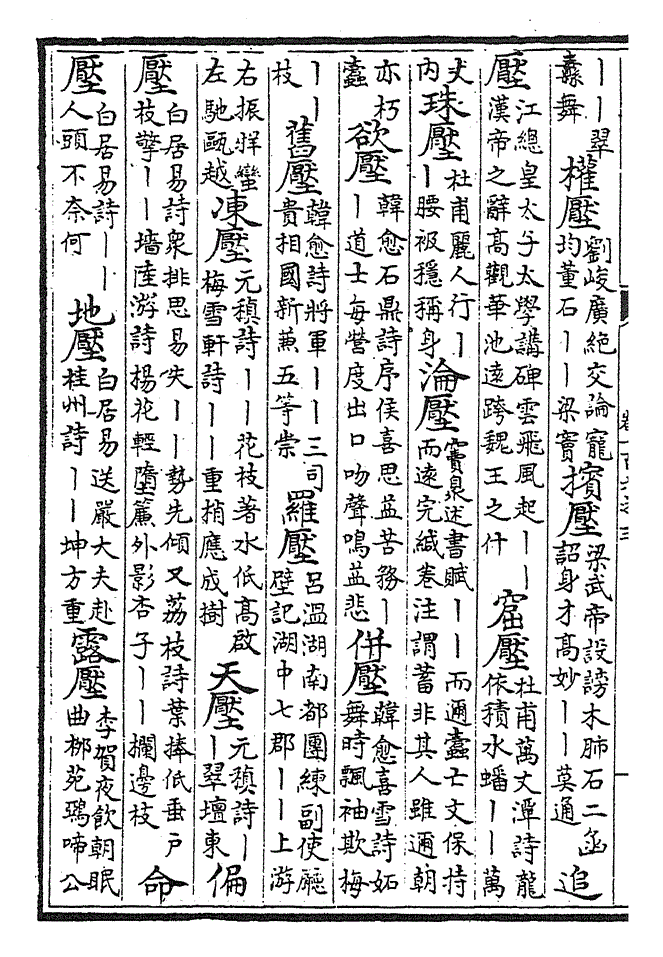 丨丨翠纛舞 權壓 劉峻廣絕交論寵均董石丨丨梁竇 擯壓 梁武帝設謗木肺石二函詔身才高妙丨丨莫通 追
壓 江總皇太子太學講碑雲飛風起丨丨漢帝之辭高觀華池遠跨魏王之什 窟壓 杜甫萬丈潭詩龍依積水蟠丨丨萬
丈内 珠壓 杜甫麗人行丨丨腰衱穩稱身 淪壓 竇臮述書賦丨丨而邇蠹亡文保持而遠完緘卷注謂蓄非其人雖邇朝
亦朽蠹 欲壓 韓愈石鼎詩序侯喜思益苦務丨丨道士每營度出口吻聲鳴益悲 併壓 韓愈喜雪詩妬舞時飄袖欺梅
丨丨枝 舊壓 韓愈詩將軍丨丨三司貴相國新兼五等崇 羅壓 呂温湖南都團練副使廳壁記湖中七郡丨丨上游
右振牂蠻左馳甌越 凍壓 元稹詩丨丨花枝著水低高啟梅雪軒詩丨丨重梢應成樹 天壓 元稹詩丨丨翠壇東 偏
壓 白居易詩衆排思易失丨丨勢先傾又荔枝詩葉捧低垂户枝擎丨丨墻陸游詩楊花輕墮簾外影杏子丨丨欄邊枝 命
壓 白居易詩丨丨人頭不奈何 地壓 白居易送嚴大夫赴桂州詩丨丨坤方重 露壓 李賀夜飲朝眠曲柳苑鴉啼公